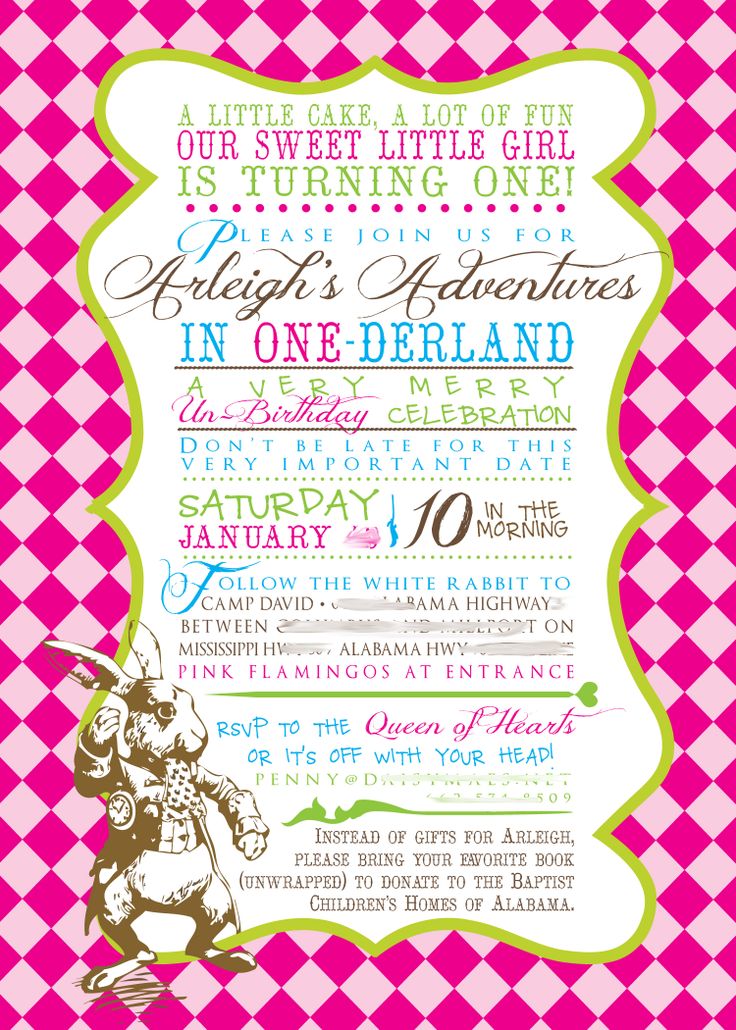 A LITTLE CAKE, A LOT OF FUN
OUR SWEET LITTLE GIRL
IS TURNING ONE!
PLEASE JOIN US FOR
Arleigh's Adventures
IN ONE-DERLAND
A VERY MERRY
Un-Birthday CELEBRATION
DON'T BE LATE FOR THIS
VERY IMPORTANT DATE
SATURDAY
JANUARY
10 IN THE
MORNING
FOLLOW THE WHITE RABBIT TO
CAMP DAVID • ALABAMA HIGHWAY
BETWEEN AND MILLPORT ON
MISSISSIPPI ALABAMA HWY
PINK FLAMINGOS AT ENTRANCE
RSVP TO THE Queen of Hearts
OR IT'S OFF WITH YOUR HEAD!
PENNY@
INSTEAD OF GIFTS FOR ARLEIGH,
PLEASE BRING YOUR FAVORITE BOOK
(UNWRAPPED) TO DONATE TO THE BAPTIST
CHILDREN'S HOMES OF ALABAMA.